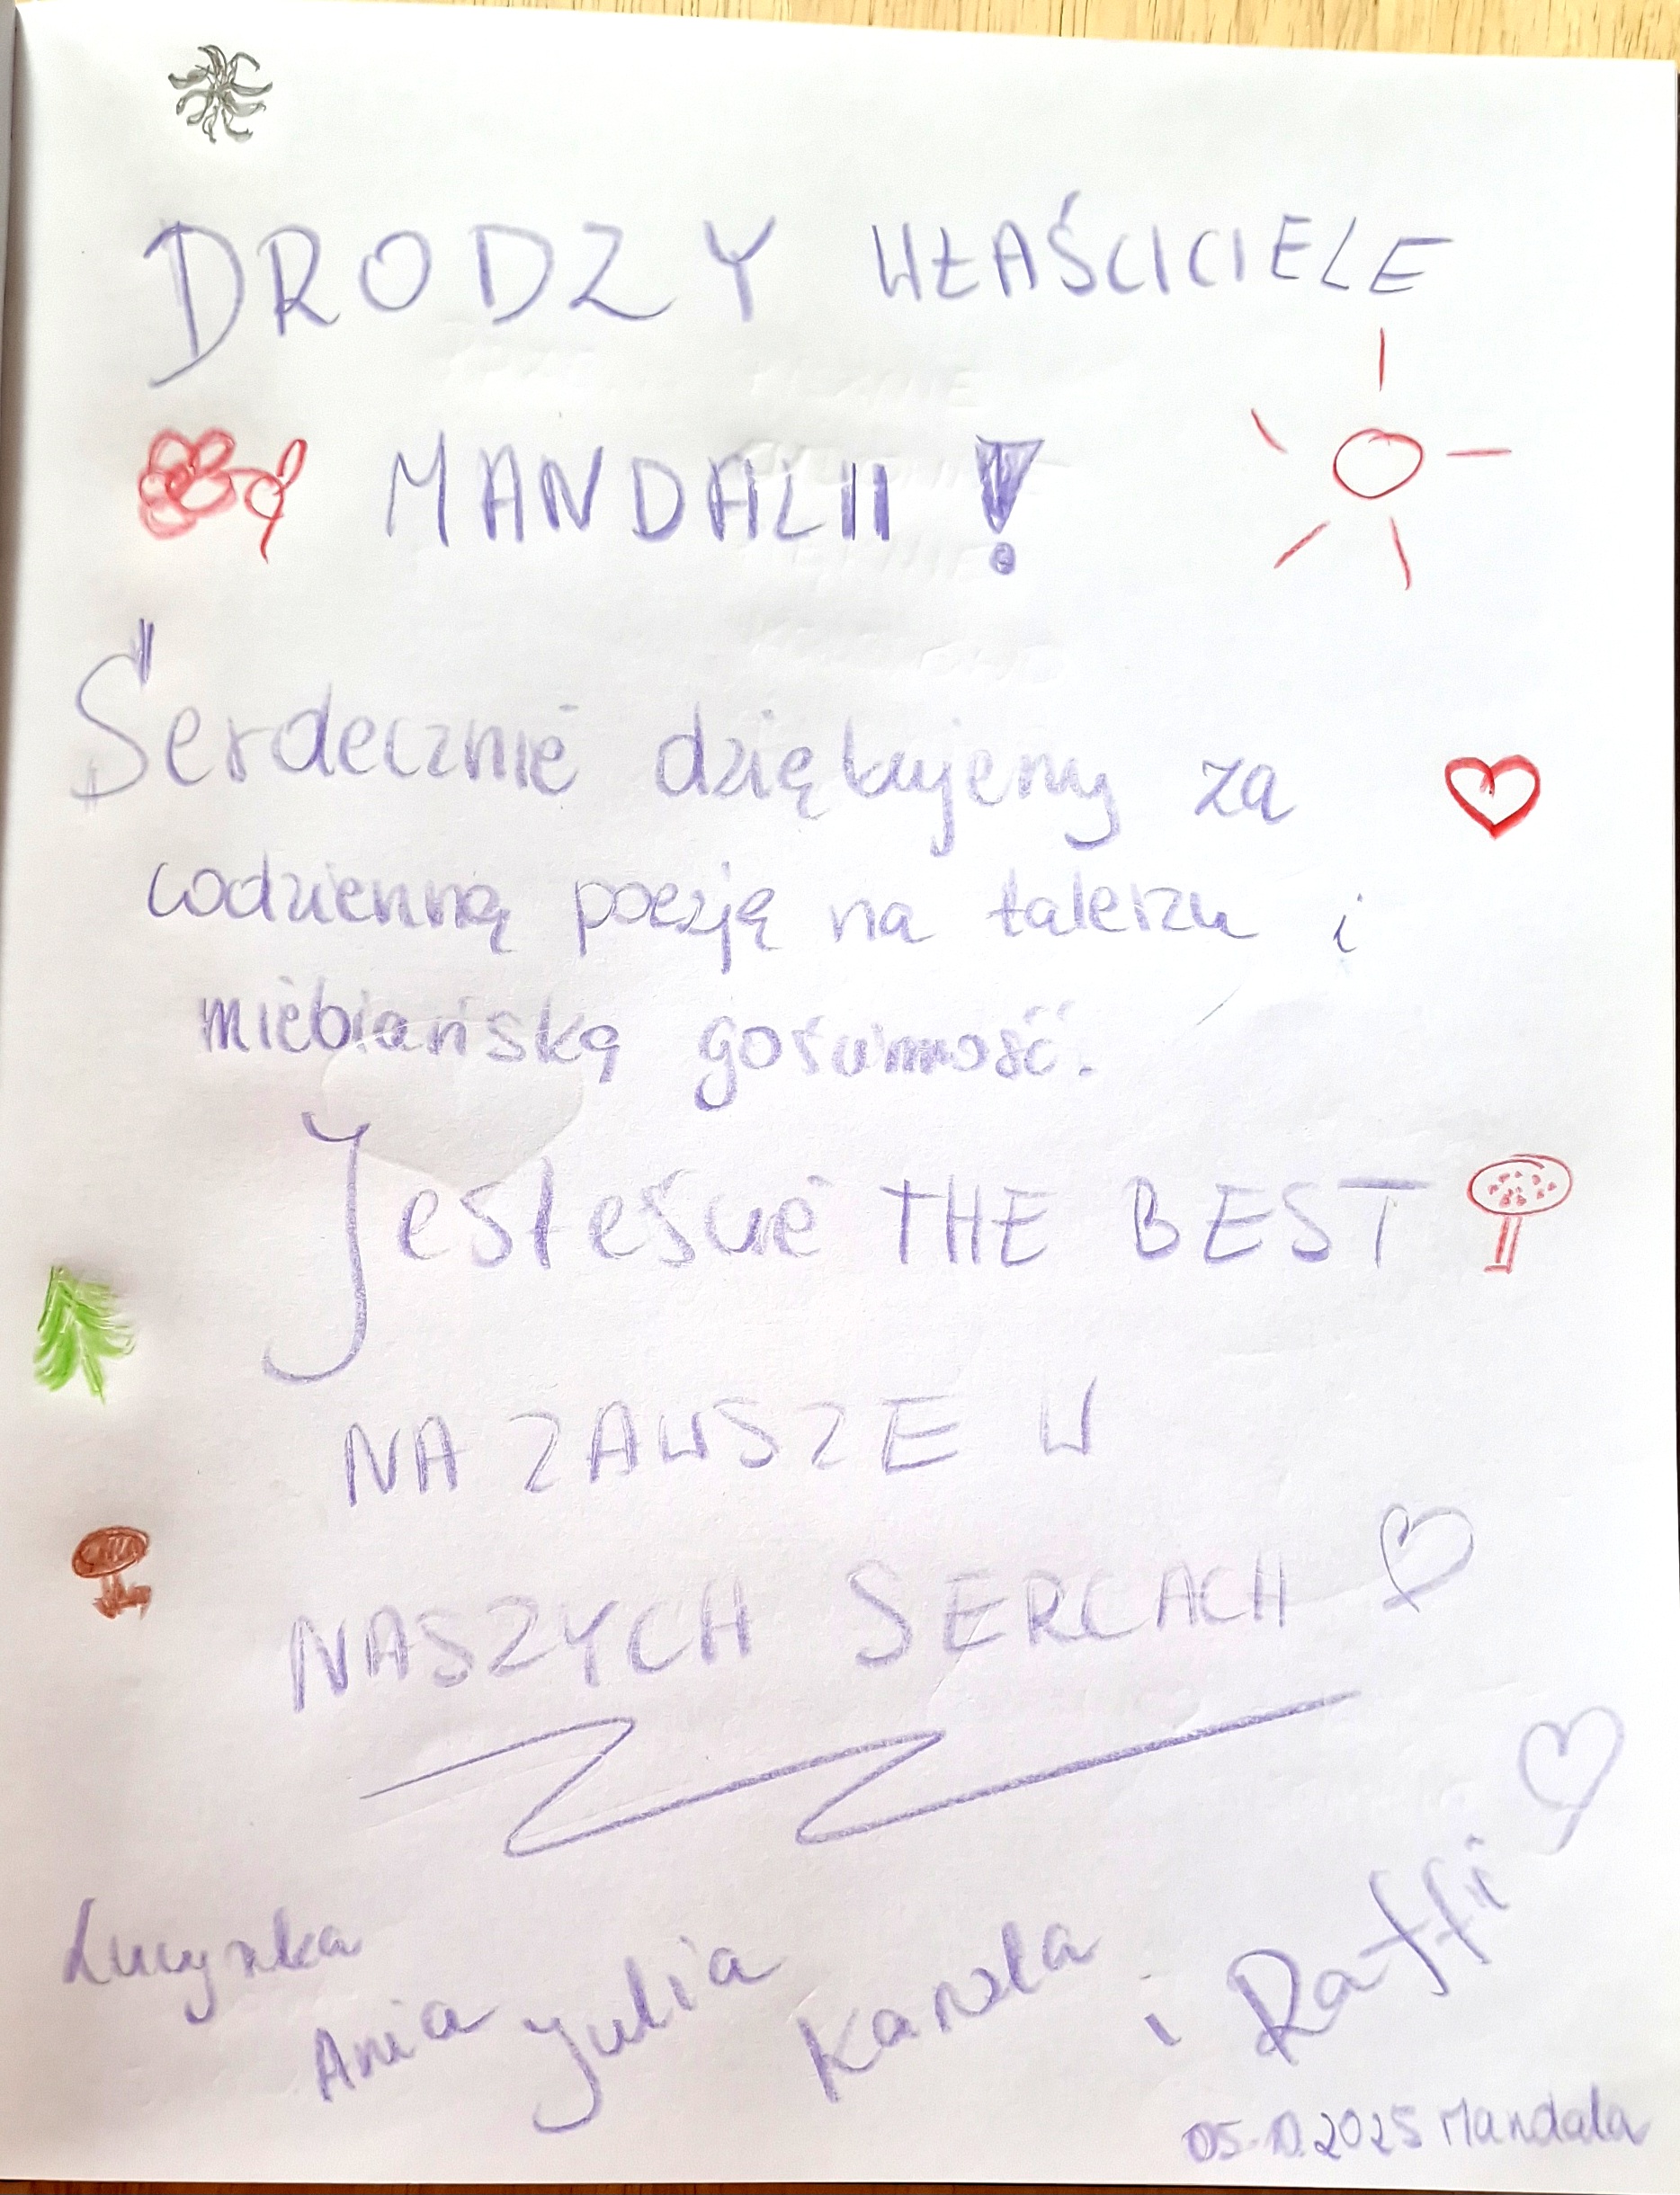 DRODZY WŁAŚCICIELE
MANDALII !
Serdecznie dziękujemy za
codzienną poezję na talerzu i
niebiańską gościnność.
Jesteście THE BEST
NA ZAWSZE W
NASZYCH SERCACH
Lucynka
Ania Julia Karola i Raffi
05.10.2025 Mandala